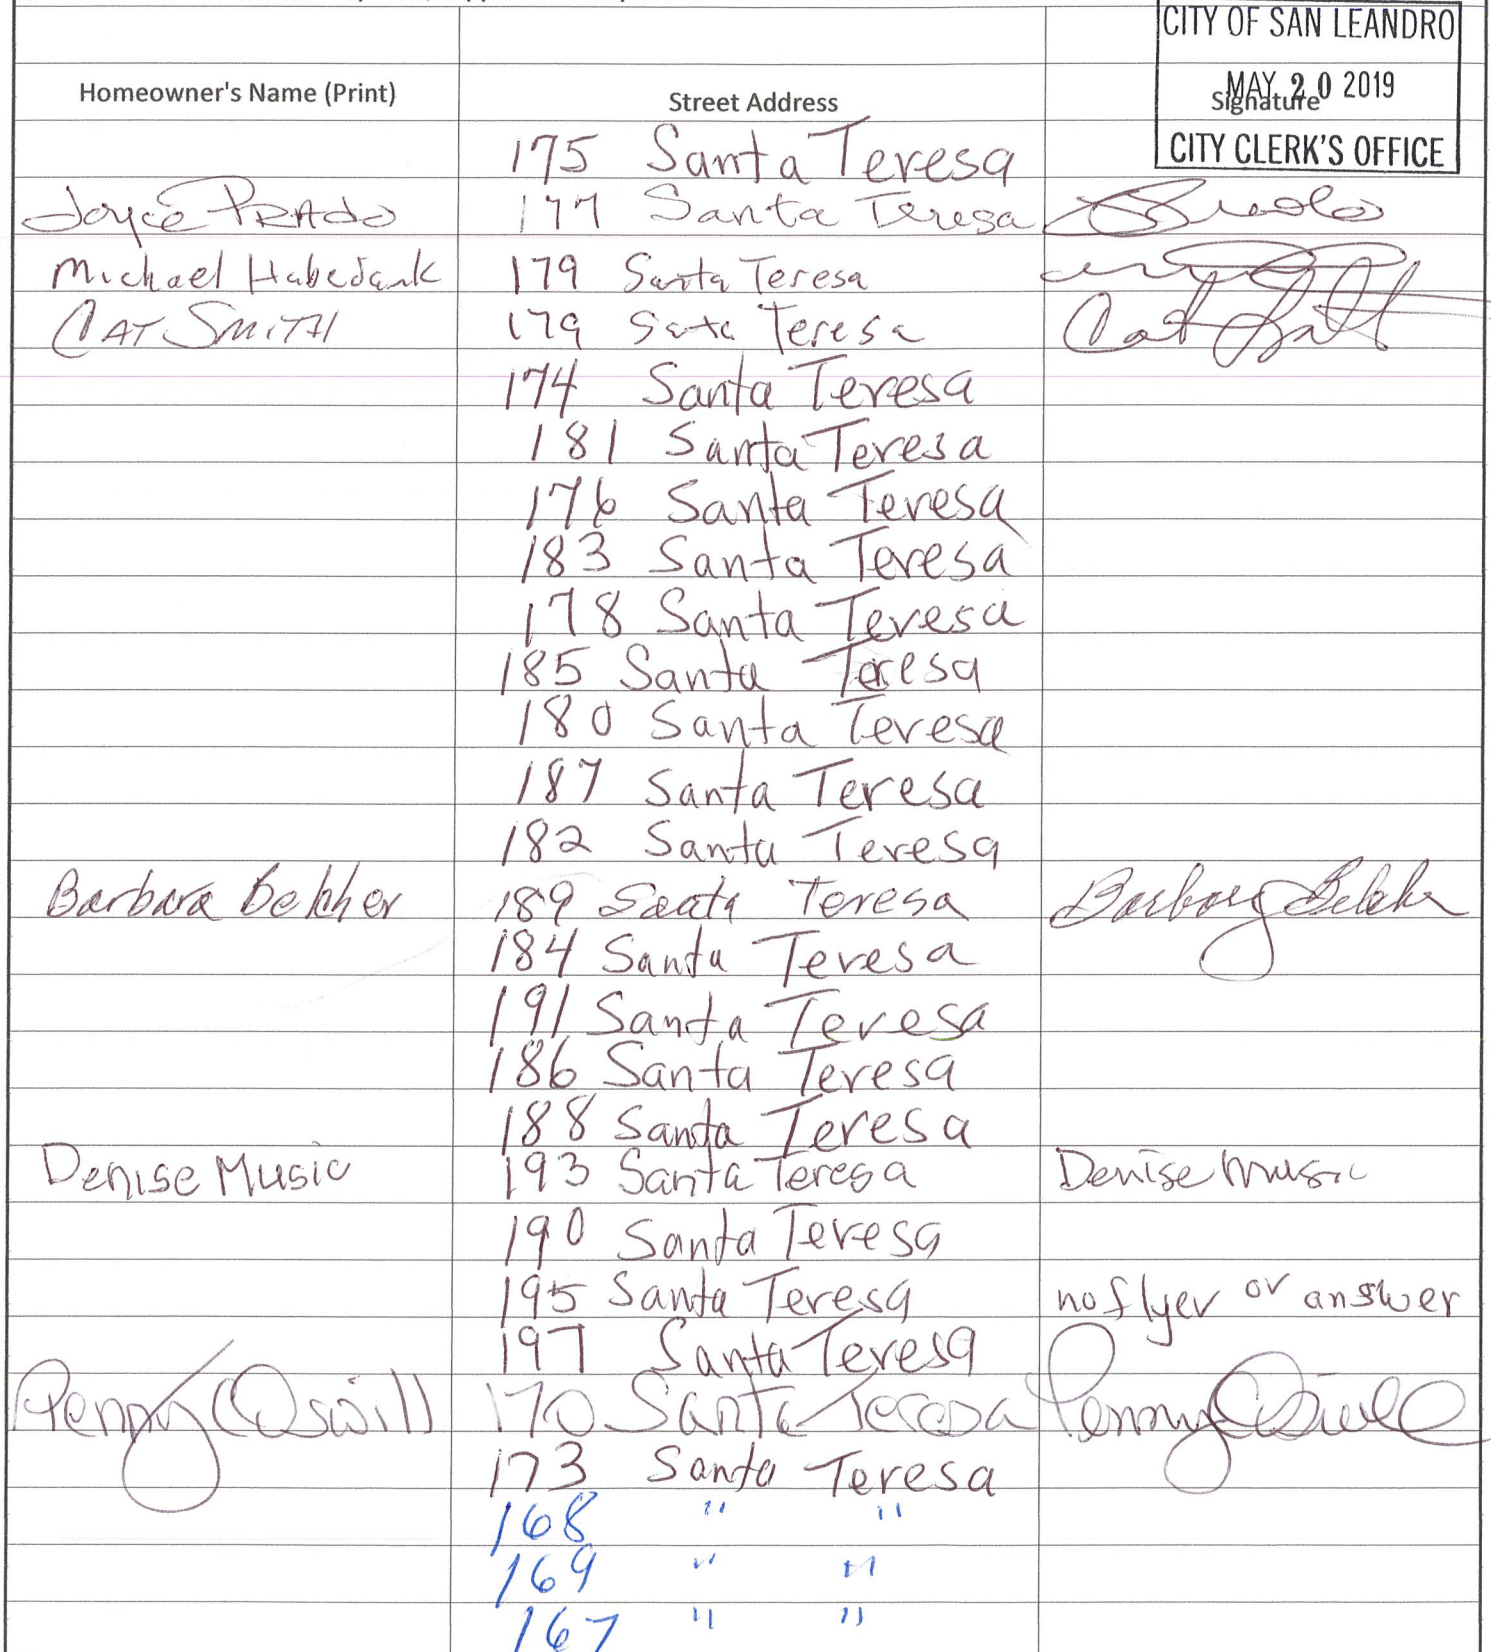 CITY OF SAN LEANDRO
MAY 20 2019
CITY CLERK'S OFFICE
Homeowner's Name (Print) Street Address Signature
175 Santa Teresa
Joyce PRAdo 177 Santa Teresa
Michael Habedank 179 Santa Teresa
CAT SMITH 179 Sata Teresa Cat Smith
174 Santa Teresa
181 Santa Teresa
176 Santa Teresa
183 Santa Teresa
178 Santa Teresa
185 Santa Teresa
180 Santa Teresa
187 Santa Teresa
182 Santa Teresa
Barbara Belcher 189 Santa Teresa Barbara Belcher
184 Santa Teresa
191 Santa Teresa
186 Santa Teresa
188 Santa Teresa
Denise Music 193 Santa Teresa Denise Music
190 Santa Teresa
195 Santa Teresa no flyer or answer
197 Santa Teresa
Penny Oswill 170 Santa Teresa Penny Oswill
173 Santa Teresa
168 " "
169 " "
167 " "